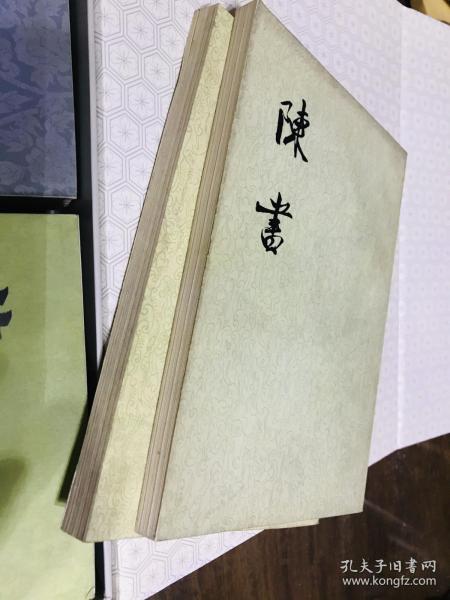 陳書
孔夫子旧书网
www.kongfz.com